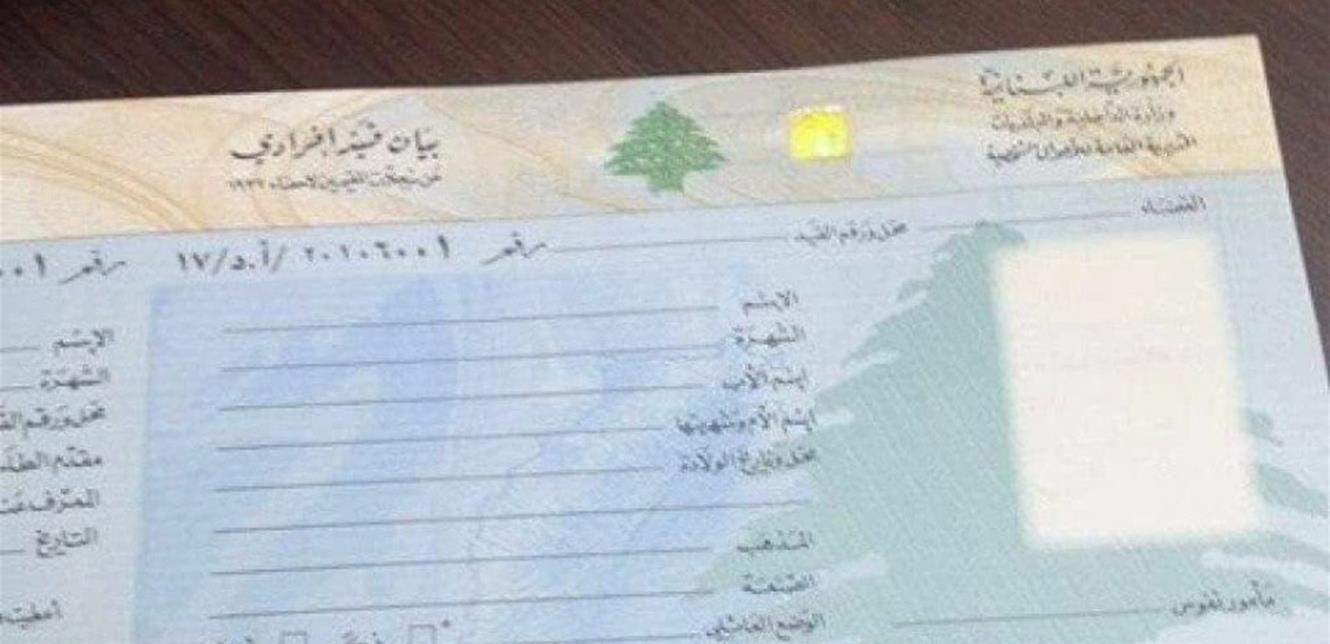 الجمهورية اللبنانية
وزارة الداخلية والبلديات
المديرية العامة للأحوال الشخصية
بيان قيد إفرادي
عن سجلات المقيمين لإحصاء ١٩٣٢
القضاء
محل ورقم القيد
رقم ٢٠١٠٦٠٠١ /أ.د/١٧
الإسم
الشهرة
إسم الأب
إسم الأم وشهرتها
محل وتاريخ الولادة
المذهب
الوضع العائلي
مأمور نفوس
رقم ٠٠١
الإسم
الشهرة
محل ورقم
مقدم
المعرف
التاريخ